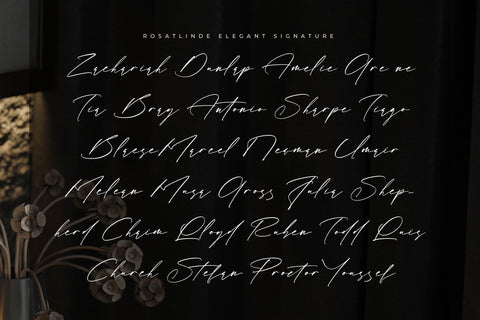 ROSATLINDE ELEGANT SIGNATURE
Zachariah Dunlap Amelie Are ne
Tia Bray Antonio Sharpe Tiago
Blaese Marcel Newman Umair
Melean Musa Gross Julia Shep-
herd Chrim Lloyd Ruben Todd Luis
Church Stefan Proctor Youssef